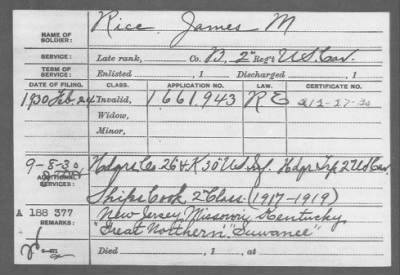 NAME OF SOLDIER: Rice James M
SERVICE: Late rank, Co. B, 2" Reg't U.S. Cav.
TERM OF SERVICE: Enlisted , 1 Discharged , 1
DATE OF FILING. CLASS. APPLICATION NO. LAW. CERTIFICATE NO.
1930 Feb. 24 Invalid, 1661,943
Widow,
Minor,
9-8-30
ADDITIONAL SERVICES: Hdqrs Co 26 & K 30 U.S. Inf. Hdqr Trp 2 U.S. Cav.
Ships Cook 2" Class (1917-1919)
A 188 377 New Jersey, Missouri, Kentucky
REMARKS: "Great Northern" "Suwanee"
Died , 1 , at